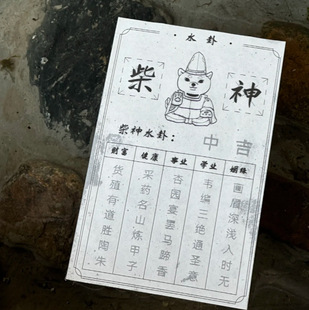 · 水卦 ·
柴 神
柴神水卦： 中吉
财富 健康 事业 学业 姻缘
货殖有道胜陶朱
采药名山炼甲子
杏园宴罢马蹄香
韦编三绝通圣意
画眉深浅入时无